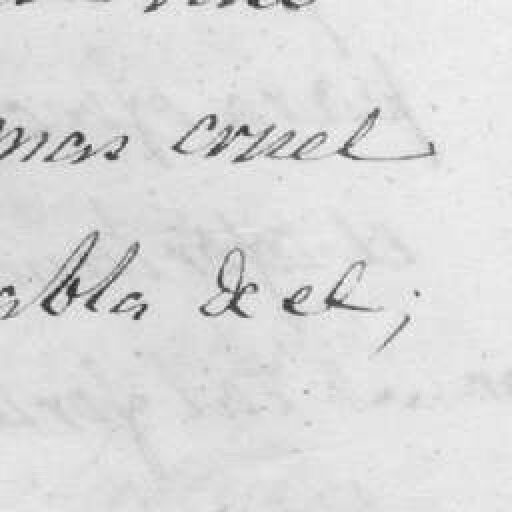 mas cruel
abla de el;